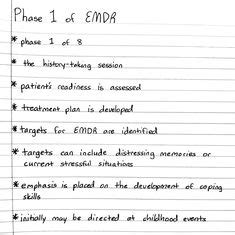 Phase 1 of EMDR
* phase 1 of 8
* the history-taking session
* patient's readiness is assessed
* treatment plan is developed
* targets for EMDR are identified
* targets can include distressing memories or
current stressful situations
* emphasis is placed on the development of coping
skills
* initially may be directed at childhood events